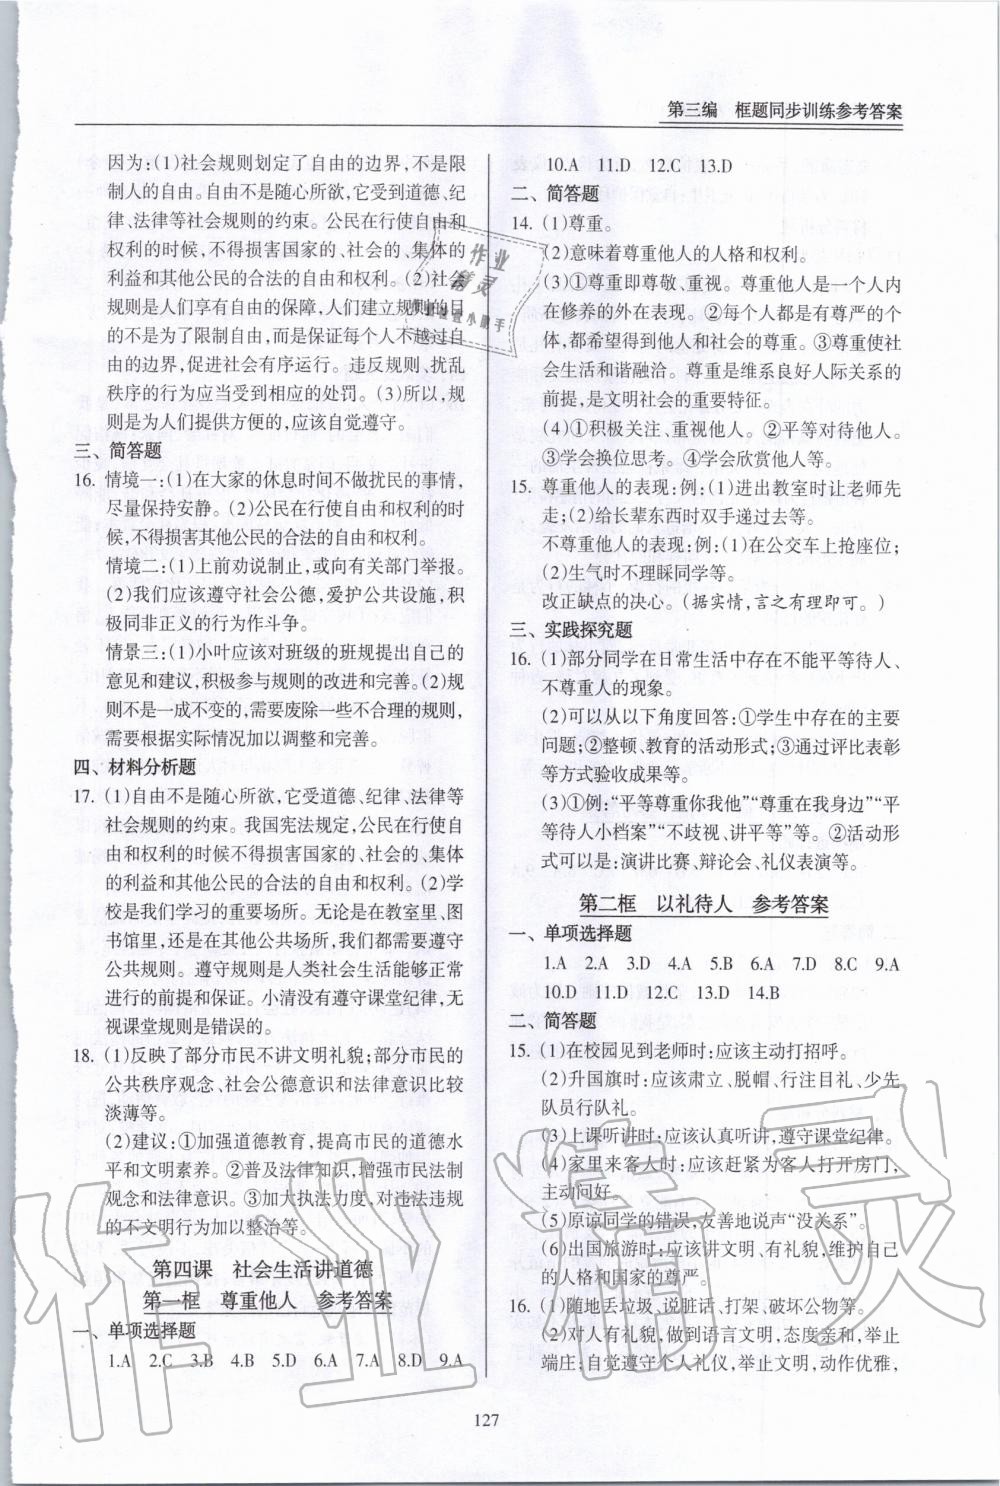 第三编　框题同步训练参考答案
因为:(1)社会规则划定了自由的边界,不是限
制人的自由。自由不是随心所欲,它受到道德、纪
律、法律等社会规则的约束。公民在行使自由和
权利的时候,不得损害国家的、社会的、集体的
利益和其他公民的合法的自由和权利。(2)社会
规则是人们享有自由的保障,人们建立规则的目
的不是为了限制自由,而是保证每个人不越过自
由的边界,促进社会有序运行。违反规则、扰乱
秩序的行为应当受到相应的处罚。(3)所以,规
则是为人们提供方便的,应该自觉遵守。
三、简答题
16. 情境一:(1)在大家的休息时间不做扰民的事情,
尽量保持安静。(2)公民在行使自由和权利的时
候,不得损害其他公民的合法的自由和权利。
情境二:(1)上前劝说制止,或向有关部门举报。
(2)我们应该遵守社会公德,爱护公共设施,积
极同非正义的行为作斗争。
情景三:(1)小叶应该对班级的班规提出自己的
意见和建议,积极参与规则的改进和完善。(2)规
则不是一成不变的,需要废除一些不合理的规则,
需要根据实际情况加以调整和完善。
四、材料分析题
17. (1)自由不是随心所欲,它受道德、纪律、法律等
社会规则的约束。我国宪法规定,公民在行使自
由和权利的时候不得损害国家的、社会的、集体
的利益和其他公民的合法的自由和权利。(2)学
校是我们学习的重要场所。无论是在教室里、图
书馆里,还是在其他公共场所,我们都需要遵守
公共规则。遵守规则是人类社会生活能够正常
进行的前提和保证。小清没有遵守课堂纪律,无
视课堂规则是错误的。
18. (1)反映了部分市民不讲文明礼貌;部分市民的
公共秩序观念、社会公德意识和法律意识比较
淡薄等。
(2)建议:①加强道德教育,提高市民的道德水
平和文明素养。②普及法律知识,增强市民法制
观念和法律意识。③加大执法力度,对违法违规
的不文明行为加以整治等。
第四课　社会生活讲道德
第一框　尊重他人　参考答案
一、单项选择题
1.A 2.C 3.B 4.B 5.D 6.A 7.A 8.D 9.A
10.A 11.D 12.C 13.D
二、简答题
14. (1)尊重。
(2)意味着尊重他人的人格和权利。
(3)①尊重即尊敬、重视。尊重他人是一个人内
在修养的外在表现。②每个人都是有尊严的个
体,都希望得到他人和社会的尊重。③尊重使社
会生活和谐融洽。尊重是维系良好人际关系的
前提,是文明社会的重要特征。
(4)①积极关注、重视他人。②平等对待他人。
③学会换位思考。④学会欣赏他人等。
15. 尊重他人的表现:例:(1)进出教室时让老师先
走;(2)给长辈东西时双手递过去等。
不尊重他人的表现:例:(1)在公交车上抢座位;
(2)生气时不理睬同学等。
改正缺点的决心。(据实情,言之有理即可。)
三、实践探究题
16. (1)部分同学在日常生活中存在不能平等待人、
不尊重人的现象。
(2)可以从以下角度回答:①学生中存在的主要
问题;②整顿、教育的活动形式;③通过评比表彰
等方式验收成果等。
(3)①例:“平等尊重你我他”“尊重在我身边”“平
等待人小档案”“不歧视、讲平等”等。②活动形
式可以是:演讲比赛、辩论会、礼仪表演等。
第二框　以礼待人　参考答案
一、单项选择题
1.A 2.A 3.D 4.A 5.B 6.A 7.D 8.C 9.A
10.D 11.D 12.C 13.D 14.B
二、简答题
15. (1)在校园见到老师时:应该主动打招呼。
(2)升国旗时:应该肃立、脱帽、行注目礼、少先
队员行队礼。
(3)上课听讲时:应该认真听讲,遵守课堂纪律。
(4)家里来客人时:应该赶紧为客人打开房门,
主动问好。
(5)原谅同学的错误,友善地说声“没关系”。
(6)出国旅游时:应该讲文明、有礼貌,维护自己
的人格和国家的尊严。
16. (1)随地丢垃圾、说脏话、打架、破坏公物等。
(2)对人有礼貌,做到语言文明,态度亲和,举止
端庄;自觉遵守个人礼仪,举止文明,动作优雅,
127
作业精灵
作业
精灵